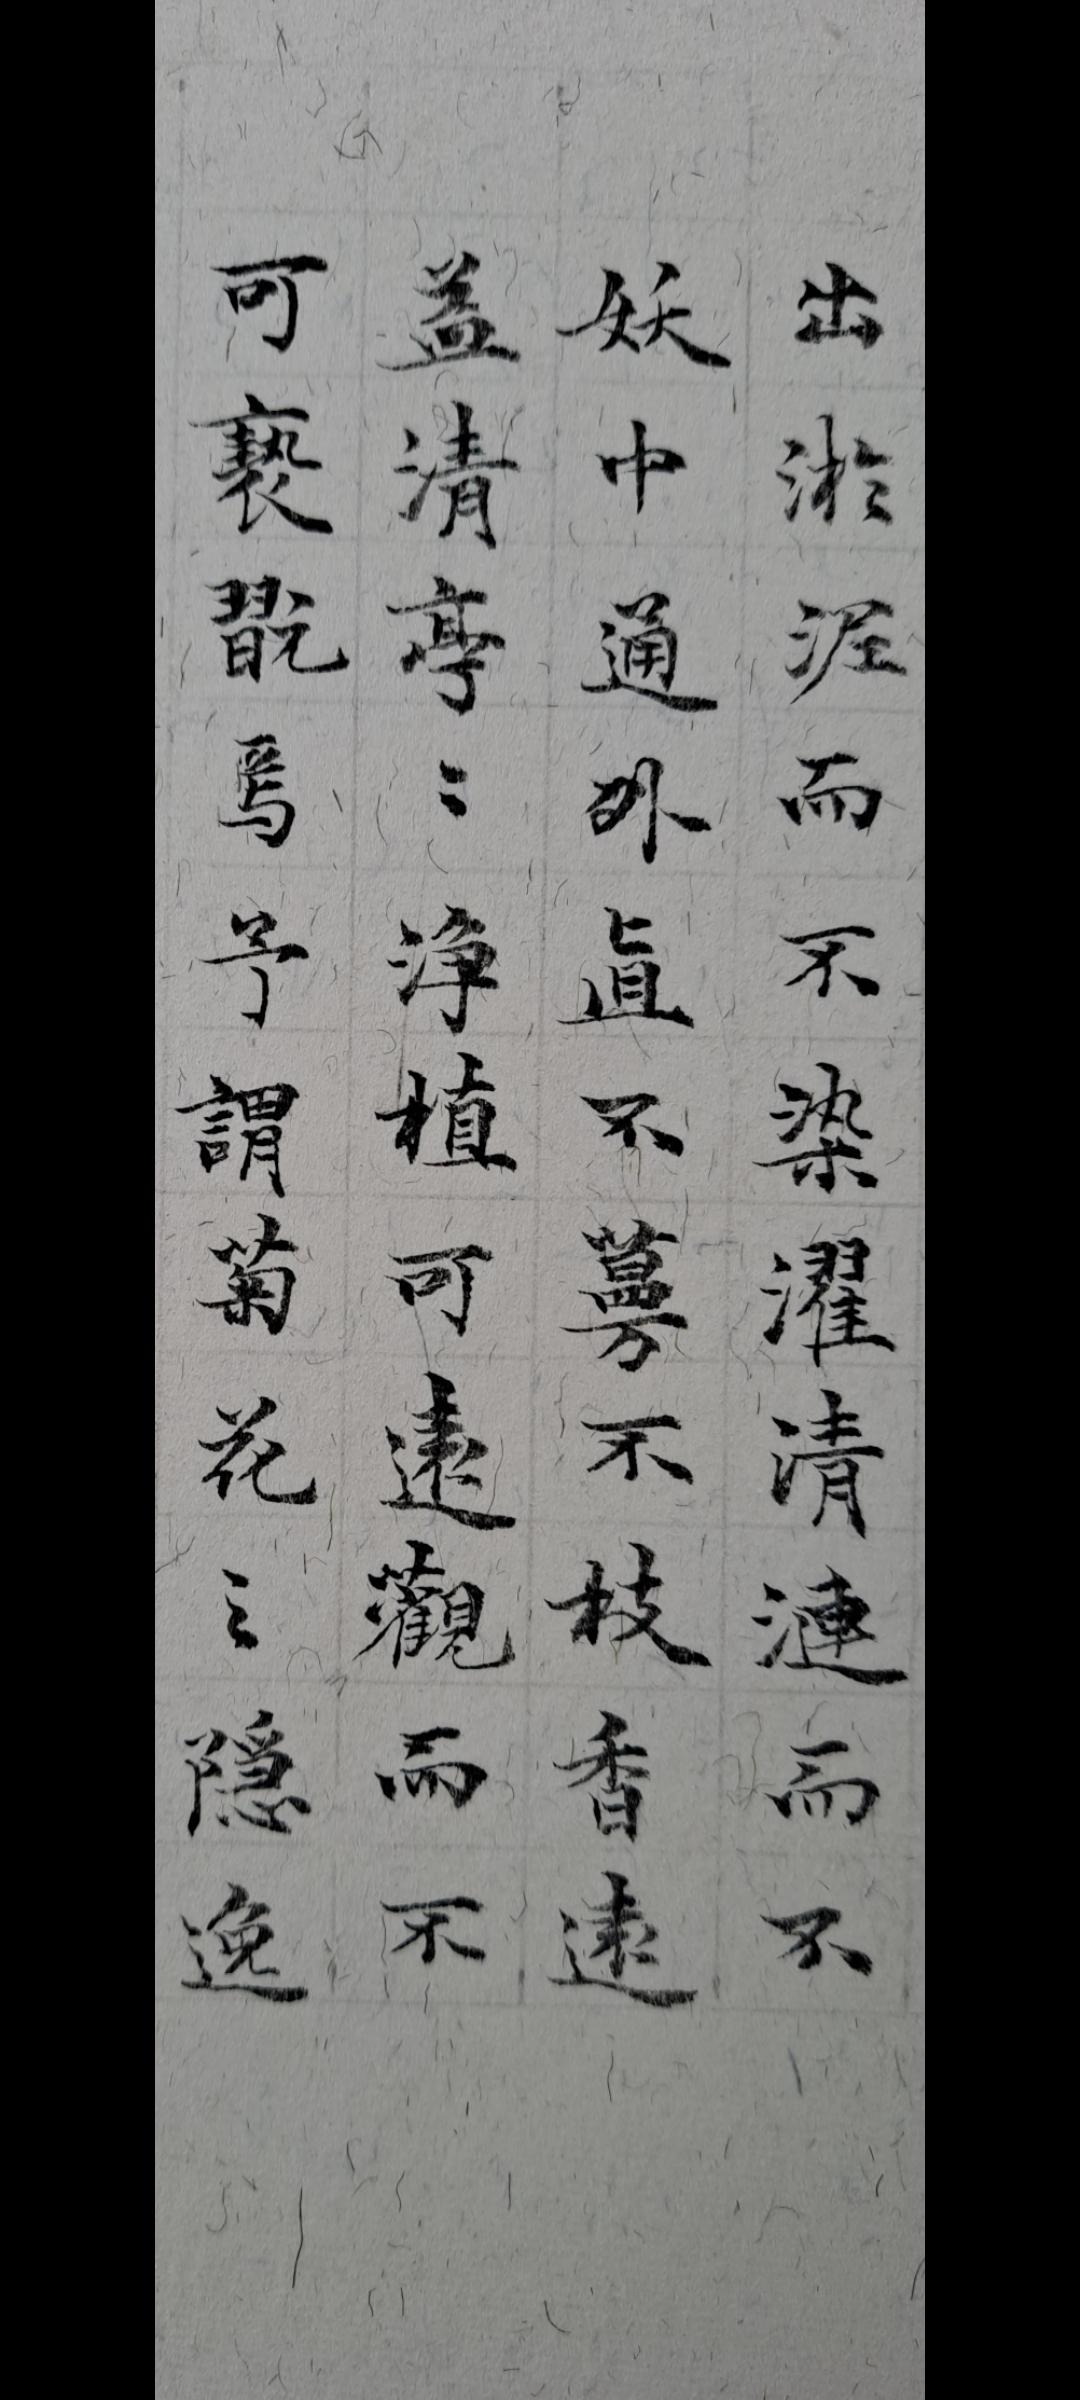 出淤泥而不染濯清漣而不
妖中通外直不蔓不枝香遠
益清亭〻淨植可遠觀而不
可褻翫焉予謂菊花〻隱逸